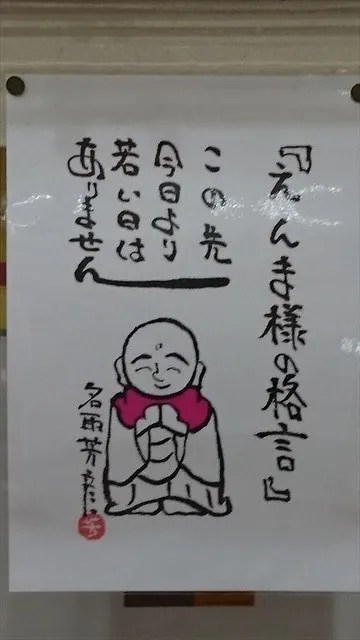 『えんま様の格言』
この先
今日より
若い日は
ありません